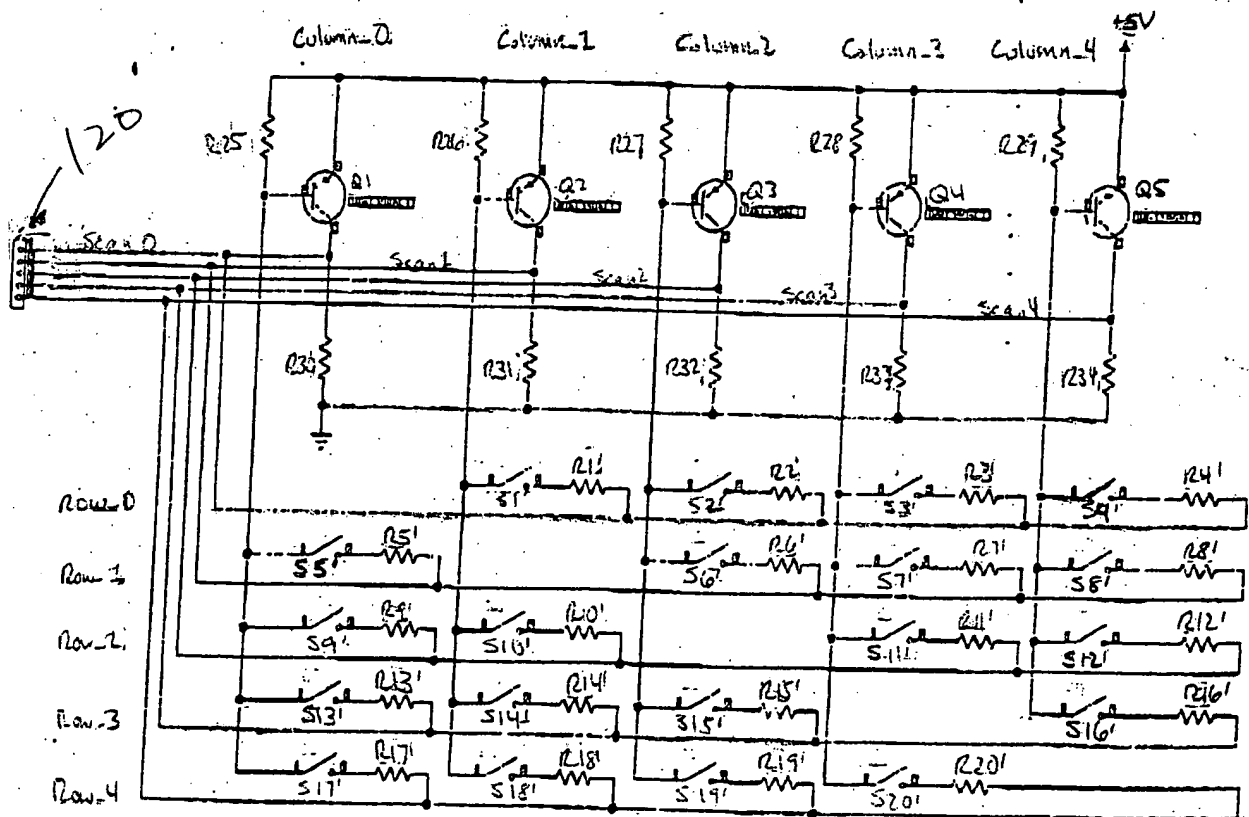 +5V
Column_0 Column_1 Column_2 Column_3 Column_4
120
R25 R26 R27 R28 R29
Q1 Q2 Q3 Q4 Q5
Scan0
Scan1
Scan2
Scan3
Scan4
R30 R31 R32 R33 R34
Row_0 S1' R1' S2' R2' S3' R3' R4'
Row_1 S5' R5' S6' R6' S7' R7' S8' R8'
Row_2 S9' R9' S10' R10' S11' R11' S12' R12'
Row_3 S13' R13' S14' R14' S15' R15' S16' R16'
Row_4 S17' R17' S18' R18' S19' R19' S20' R20'